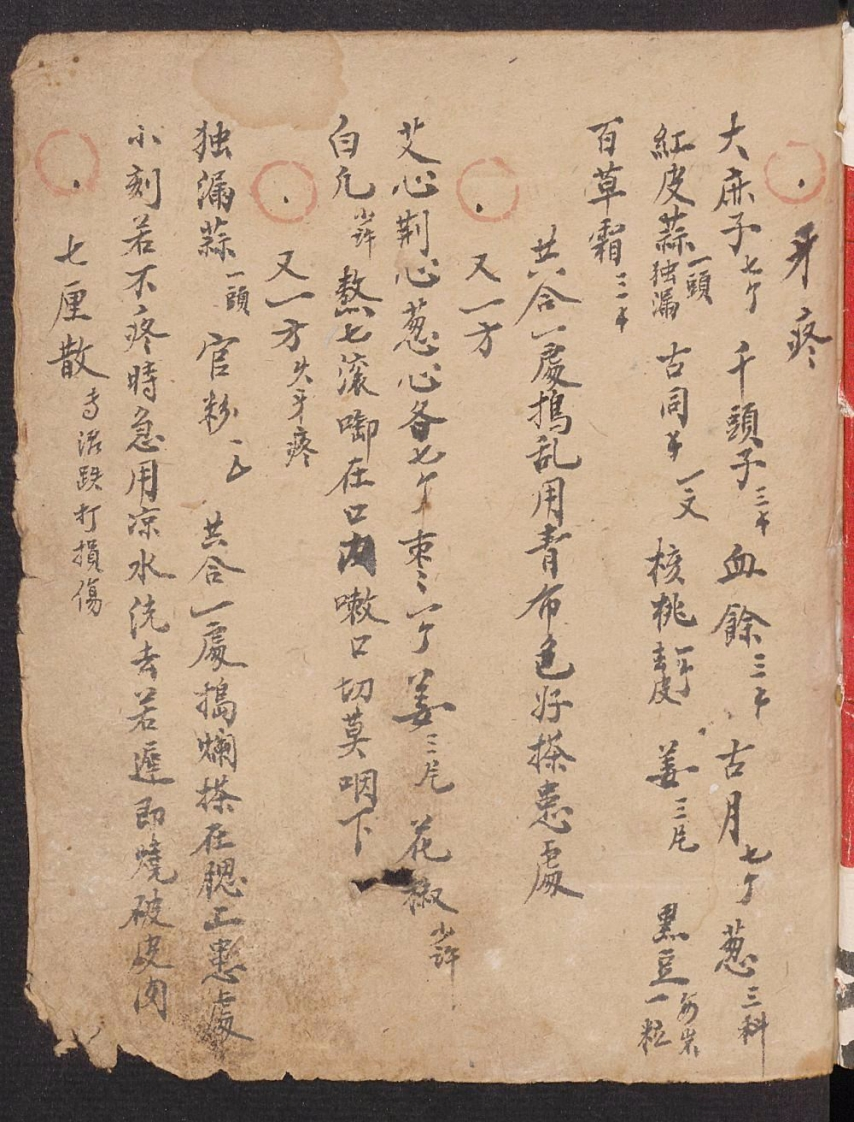 牙疼
大麻子七个 千頭子三个 血餘三个 古月七个 葱三科
紅皮蒜一頭独漏 古同 一文 核桃一个去皮 姜三片 黑豆 一粒
百草霜三个
共合一處搗乱用青布包好搽患處
又一方
艾心荆心葱心各七个 枣一个 姜三片 花椒少許
白凡少許 熬七滚啣在口内嗽口切莫咽下
又一方 火牙疼
独漏蒜一頭 官粉 共合一處搗爛搽在腮上患處
小刻若不疼時急用凉水洗去若遲即燒破皮肉
七厘散 专治跌打損傷